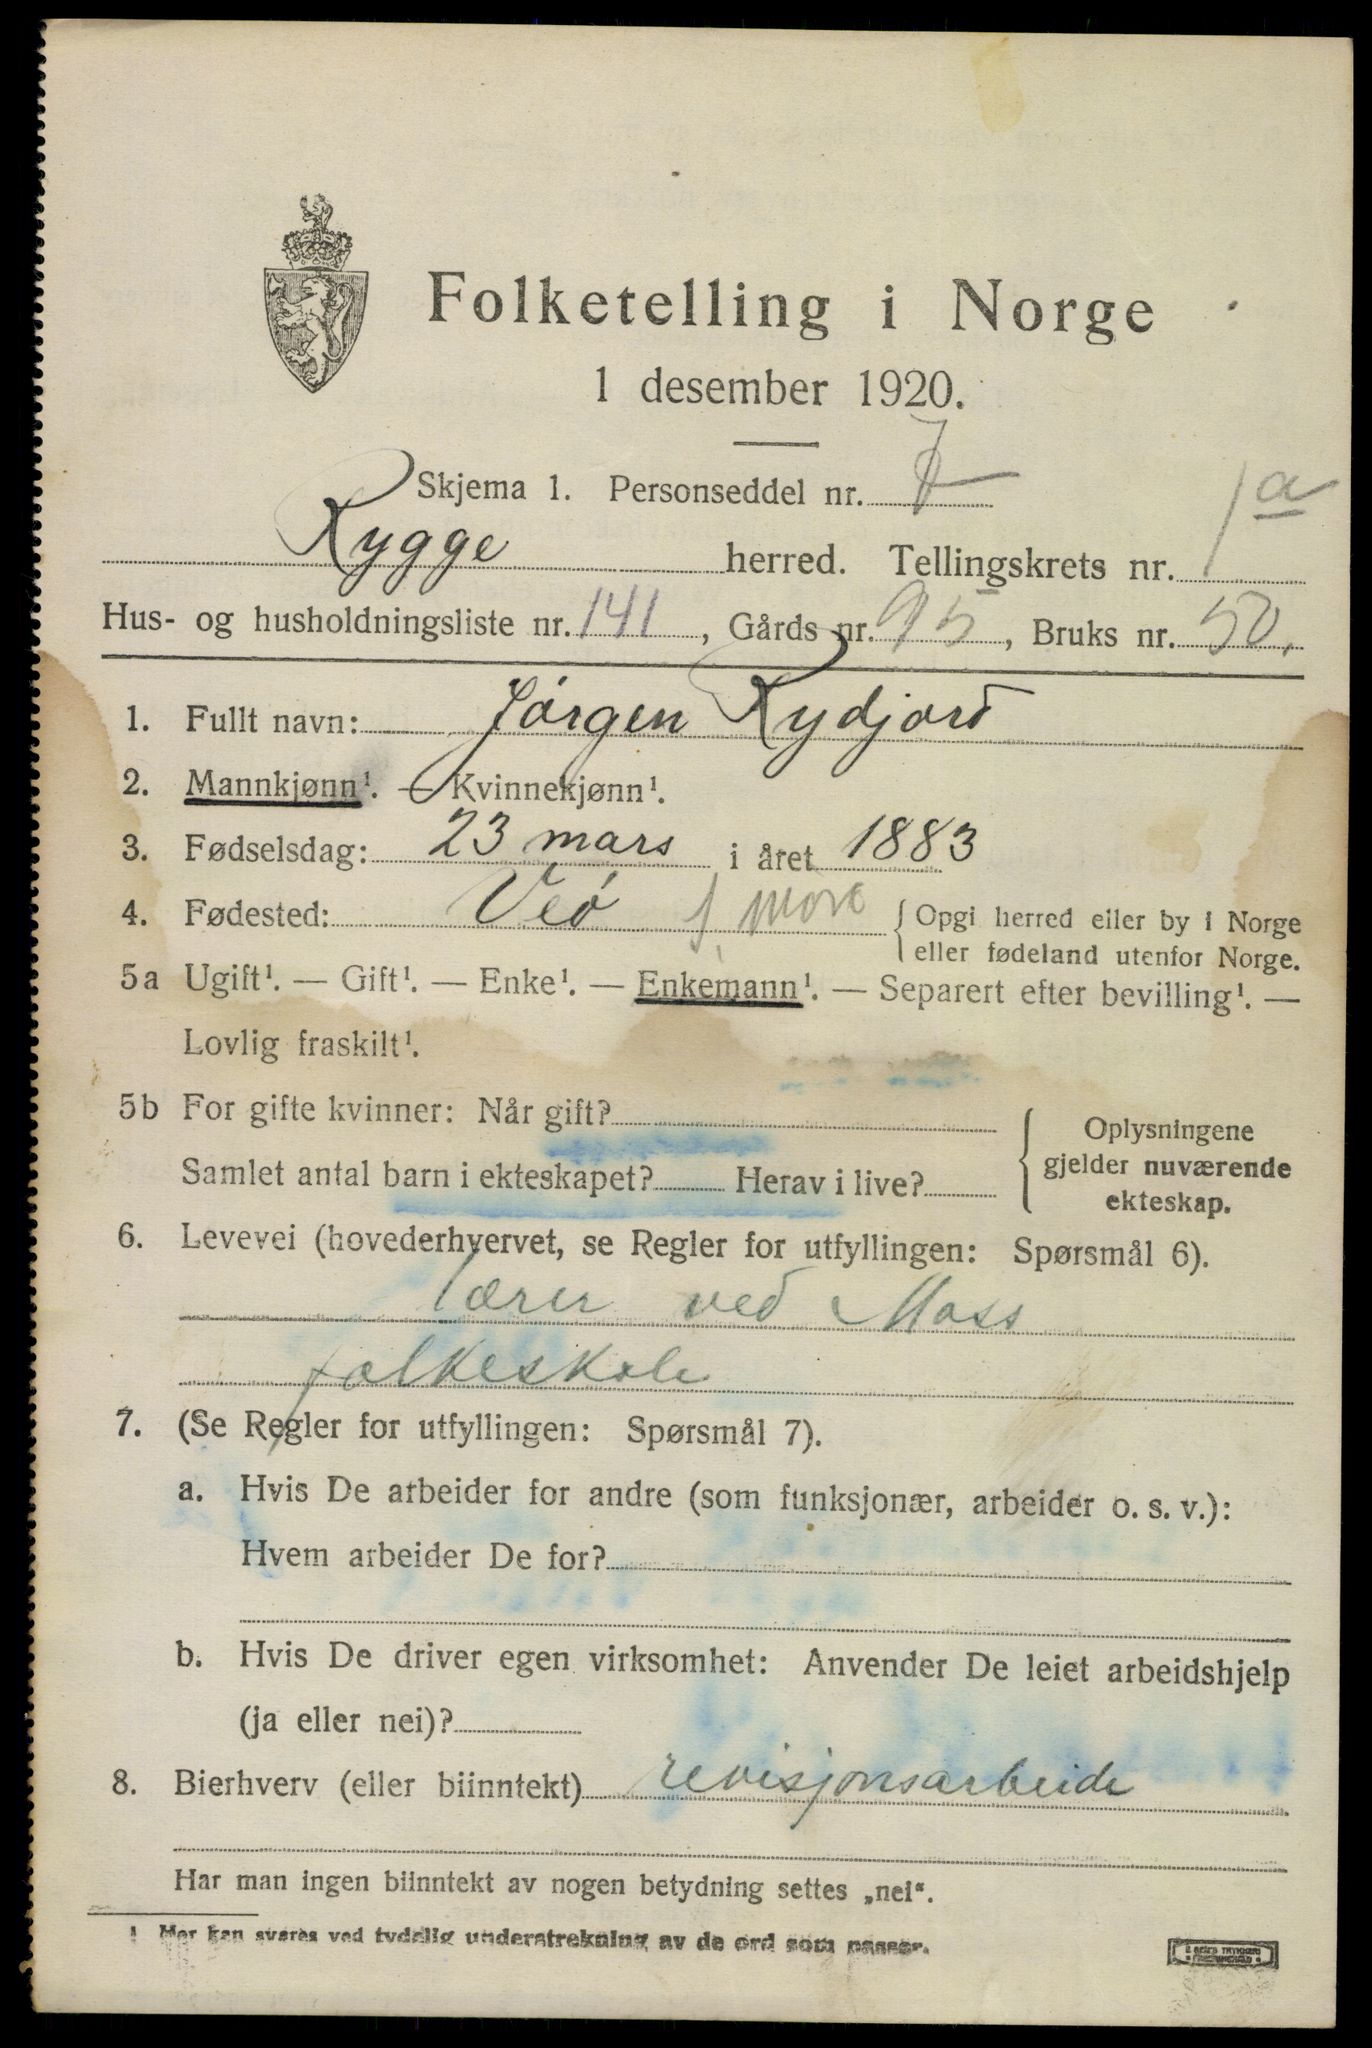 Folketelling i Norge
1 desember 1920.
Skjema 1. Personseddel nr. 7
Rygge herred. Tellingskrets nr. 1a
Hus- og husholdningsliste nr. 141, Gårds nr. 95, Bruks nr. 50.
1. Fullt navn: Jórgen Rydjord
2. Mannkjønn¹. — Kvinnekjønn¹.
3. Fødselsdag: 23 mars i året 1883
4. Fødested: Veó more { Opgi herred eller by i Norge
eller fødeland utenfor Norge.
5a Ugift¹. — Gift¹. — Enke¹. — Enkemann¹. — Separert efter bevilling¹. —
Lovlig fraskilt¹.
5b For gifte kvinner: Når gift?
Samlet antal barn i ekteskapet? Herav i live?
Oplysningene
gjelder nuværende
ekteskap.
6. Levevei (hovederhvervet, se Regler for utfyllingen: Spørsmål 6).
lærer ved Moss
folkeskole
7. (Se Regler for utfyllingen: Spørsmål 7).
a. Hvis De arbeider for andre (som funksjonær, arbeider o. s. v.):
Hvem arbeider De for?
b. Hvis De driver egen virksomhet: Anvender De leiet arbeidshjelp
(ja eller nei)?
8. Bierhverv (eller biinntekt) revisjonsarbeide
Har man ingen biinntekt av nogen betydning settes „nei“.
1 Her kan svares ved tydelig understrekning av de ord som passer.